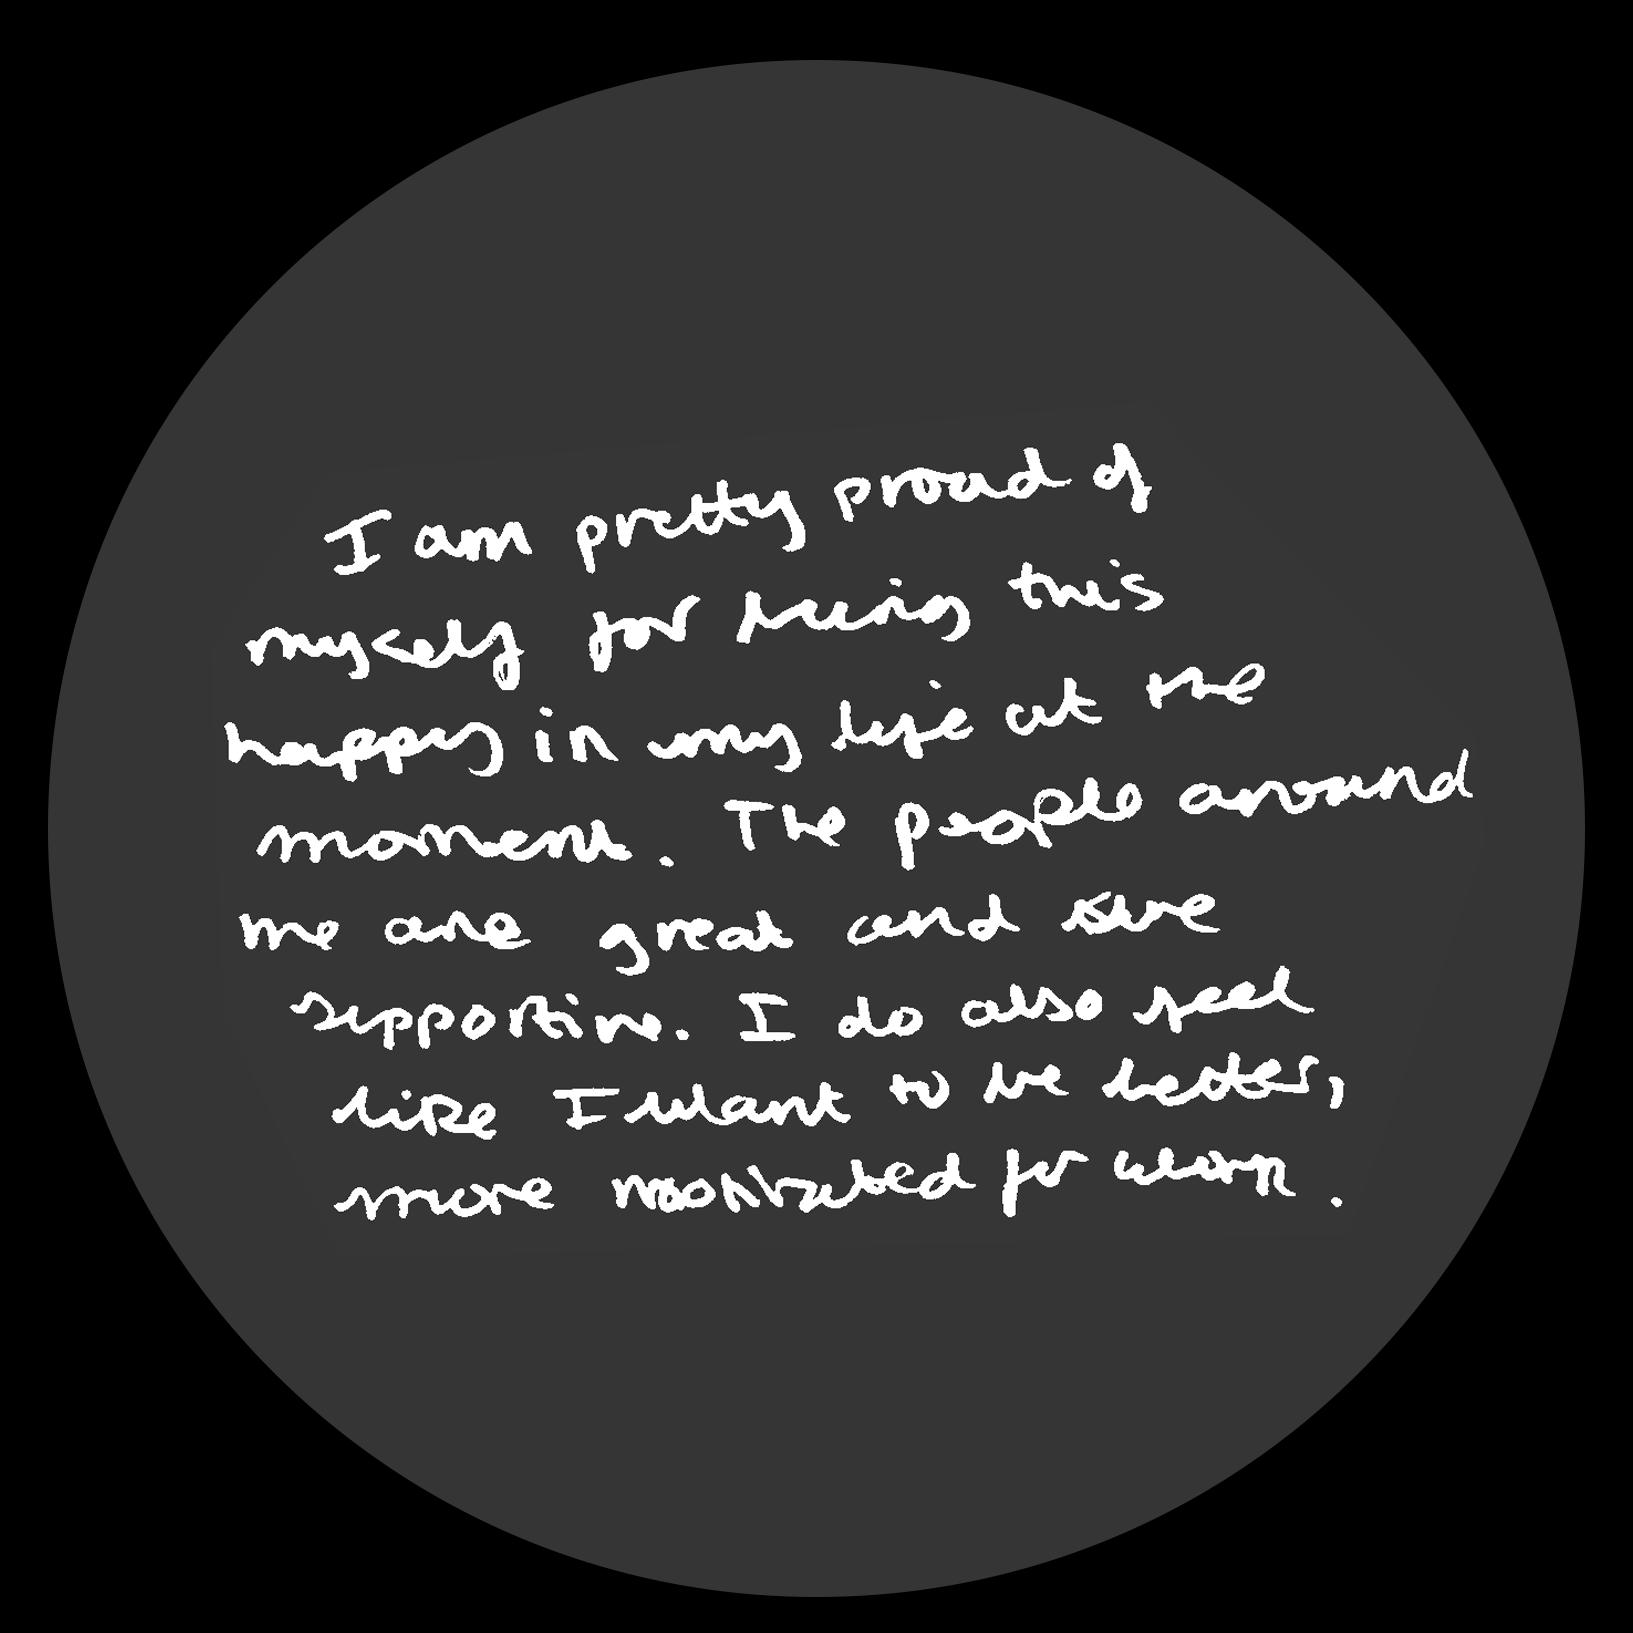 I am pretty proud of
myself for being this
happy in my life at the
moment. The people around
me are great and are
supportive. I do also feel
like I want to be better,
more motivated for work.